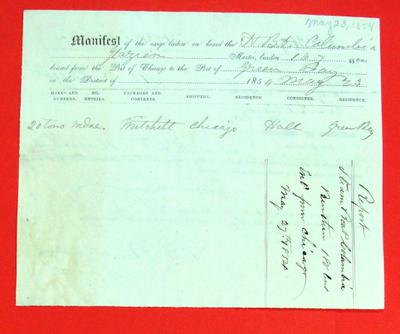 May 23, 1854
Manifest of the cargo laden on board the St. Bt. Columbia
Master, burden tons
bound from the Port of Chicago to the Port of Green Bay
in the District of 1854 May 23
MARKS AND NUMBERS. NO. ENTRIES. PACKAGES AND CONTENTS. SHIPPERS. RESIDENCE CONSIGNEE. RESIDENCE.
20 tons mdse. Chicago Hall Green Bay
Report
Steam Boat Columbia
Burthen tons
from Chicago
May 27th 1854